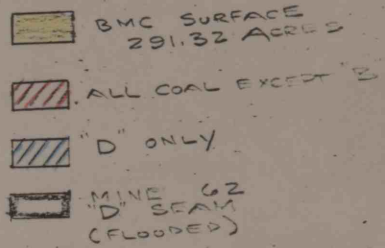 BMC SURFACE
291.32 ACRES
ALL COAL EXCEPT "B
"D" ONLY
MINE 62
"D" SEAM
(FLOODED)